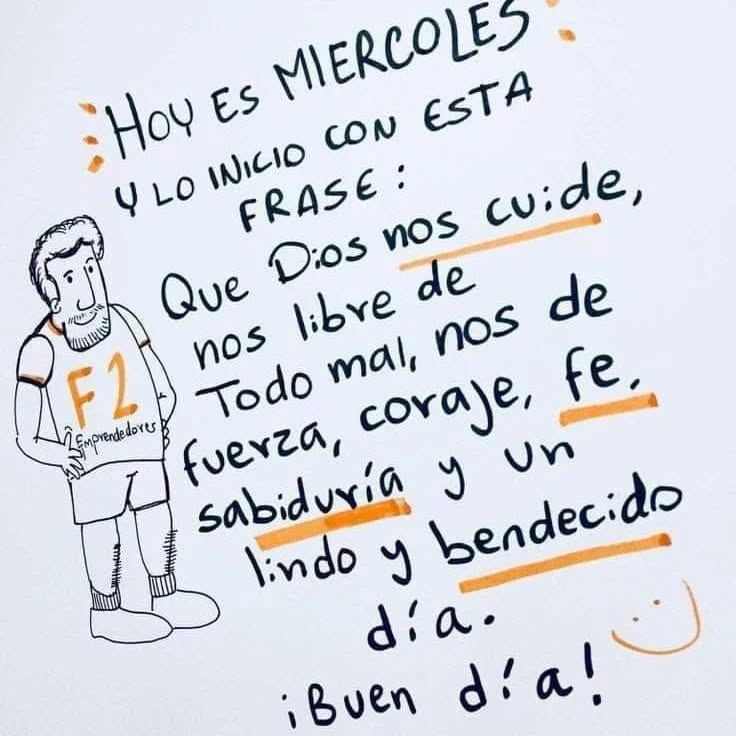 HOY ES MIERCOLES
Y LO INICIO CON ESTA
FRASE:
Que Dios nos cuide,
nos libre de
Todo mal, nos de
fuerza, coraje, fe,
sabiduría y un
lindo y bendecido
día.
¡Buen día!
F2
Emprendedores